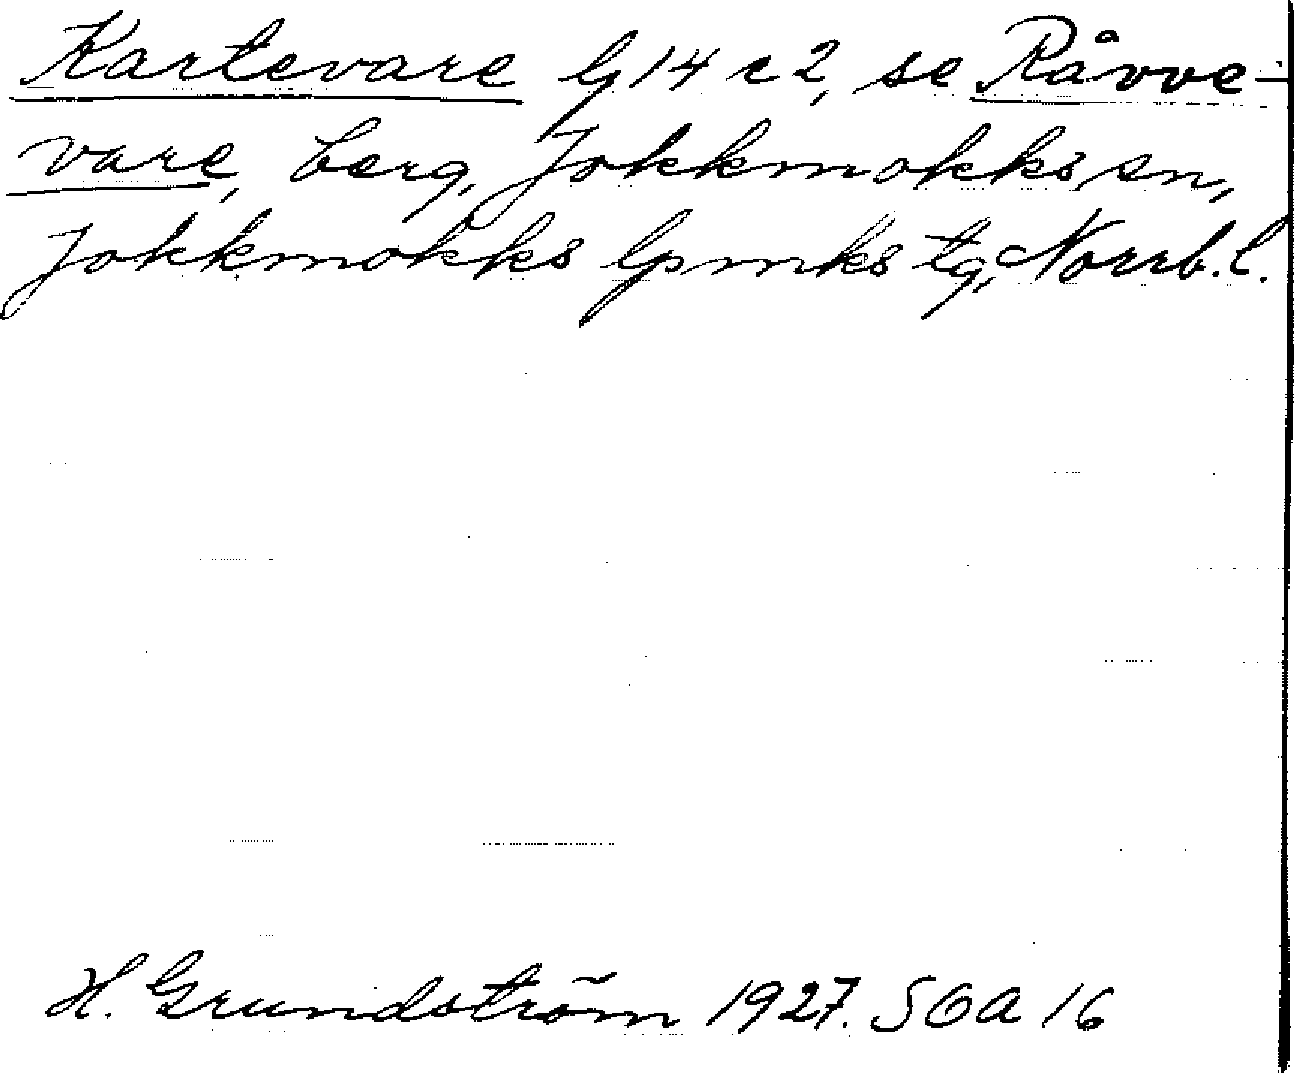 Kartevare lg 14 c 2, se Råvve-
vare, berg, Jokkmokks sn,
Jokkmokks lpmks tg, Norrb. l.
H. Grundström 1927. SOA 16